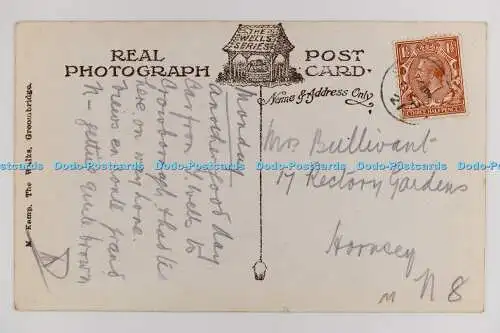 REAL
PHOTOGRAPH
THE
WELLS
SERIES
POST
CARD.
Name & Address Only.
M. Kemp, The Walks, Groombridge.
Monday
another good day
Car from T/Wells to
Crowborough & had tea
here on way home.
news en route grand
N - getting quite brown
Mrs Bullivant
17 Rectory Gardens
Hornsey
N 8
THREE HALFPENCE
Dodo-Postcards Dodo-Postcards Dodo-Postcards Dodo-Postcards Dodo-Postcards Dodo-Postcards